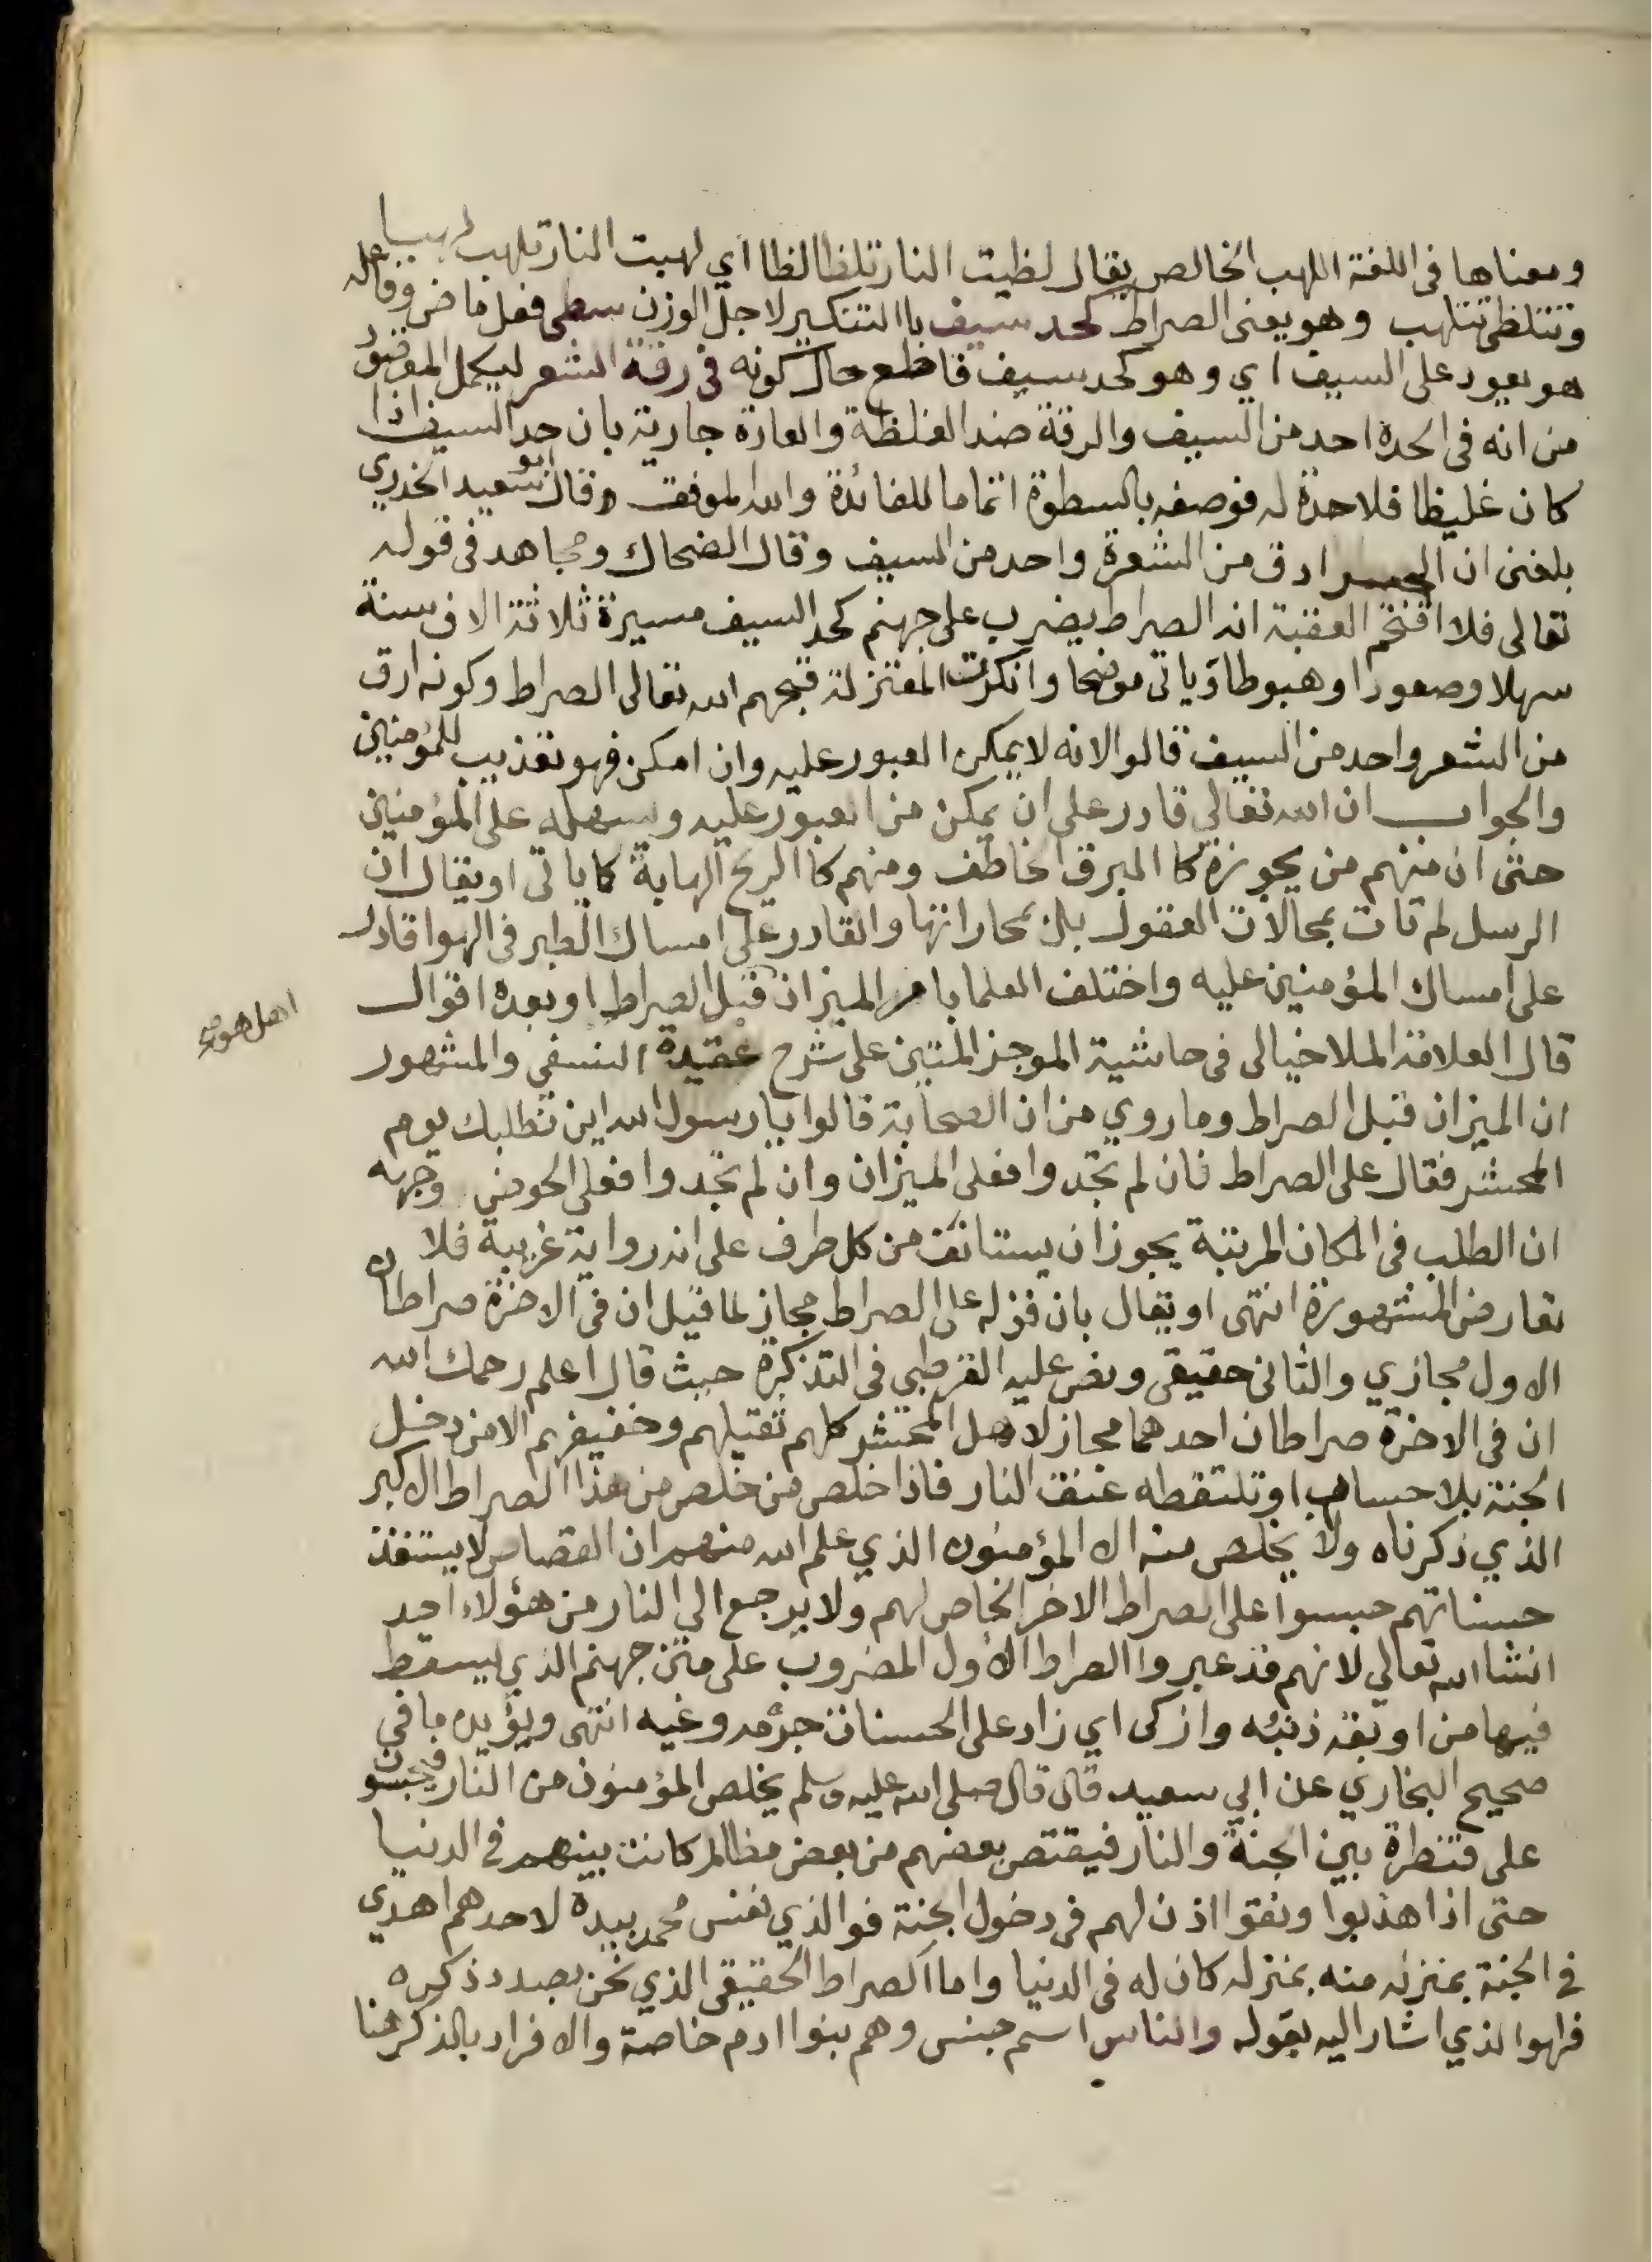 ومعناها فى اللغة اللهب الخالص يقال لظيت النار تلظا لظا اي لهبت النار تلهب لهيبا
وتتلظى تتلهب وهو يعنى الصراط كحد سيف باالتنكير لاجل الوزن سطى فعل ماض وفاعله
هو يعود على السيف اي وهو كحد سيف قاطع حال كونه فى رقة الشعر ليكمل المقصود
من انه فى الحدة احد من السيف والرقة ضد الغلظة والعادة جارية بان حد السيف اذا
كان غليظا فلا حدة له فوصفه بالسطوة اتماما للفائدة والله الموفق وقال ابو سعيد الخدري
بلغنى ان الجسر ادق من الشعرة واحد من السيف وقال الضحاك ومجاهد فى قوله
تعالى فلا اقتحم العقبة انه الصراط يضرب على جهنم كحد السيف مسيرة ثلاثة الاف سنة
سهلا وصعودا وهبوطا وياتى موضحا وانكرت المعتزلة قبحهم الله تعالى الصراط وكونه ارق
من الشعر واحد من السيف قالوا لانه لا يمكن العبور عليه وان امكن فهو تعذيب للمؤمنين
والجواب ان الله تعالي قادر على ان يمكن من العبور عليه ويسهله على المؤمنين
حتى ان منهم من يجوزه كا البرق الخاطف ومنهم كا الريح الهابة كما ياتى او يقال ان
الرسل لم تات بمحالات العقول بل بمحاراتها والقادر على امساك الطير فى الهوا قادر
على امساك المؤمنين عليه واختلف العلما با مر الميزان قبل الصراط او بعده اقوال
اهل هو
قال العلامة الملا خيالى فى حاشية الموجز المتين على شرح عقيدة النسفي والمشهور
ان الميزان قبل الصراط وما روي من ان الصحابة قالوا يا رسول الله اين نطلبك يوم
المحشر فقال على الصراط فان لم تجدوا فعلى الميزان وان لم تجدوا فعلى الحوض وجهه
ان الطلب فى المكان المرتبة يجوز ان يستانف من كل طرف على انه رواية غريبة فلا
تعارض المشهورة انتهى او يقال بان قوله على الصراط مجاز لما قيل ان فى الاخرة صراطان
الاول مجازي والثانى حقيقى ونص عليه القرطبي فى التذكرة حيث قال اعلم رحمك الله
ان فى الاخرة صراطان احدهما مجاز لاهل المحشر كلهم ثقيلهم وخفيفهم الا من دخل
الجنة بلا حساب او تلتقطه عنق النار فاذا خلص من خلص من هذا الصراط الاكبر
الذي ذكرناه ولا يخلص منه الا المؤمنون الذي علم الله منهم ان القصاص لا يستنفذ
حسناتهم حبسوا على الصراط الاخر الخاص لهم ولا يرجع الي النار من هؤلاء احد
انشا الله تعالي لانهم قد عبروا الصراط الاول المضروب على متن جهنم الذي يسقط
فيها من اوبقه ذنبه وازكى اي زاد على الحسنات جرمه وغيه انتهى ويؤيده ما في
صحيح البخاري عن ابي سعيد قال قال صلى الله عليه وسلم يخلص المؤمنون من النار فيحبسون
على قنطرة بين الجنة والنار فيقتص بعضهم من بعض مظالم كانت بينهم في الدنيا
حتى اذا هذبوا ونقوا اذن لهم فى دخول الجنة فوالذي نفس محمد بيده لاحدهم اهدي
في الجنة بمنزله منه بمنزله كان له فى الدنيا واما الصراط الحقيقى الذي نحن بصدد ذكره
فهوا لذي اشار اليه بقوله والناس اسم جنس وهم بنوا ادم خاصة والافراد بالذكر هنا